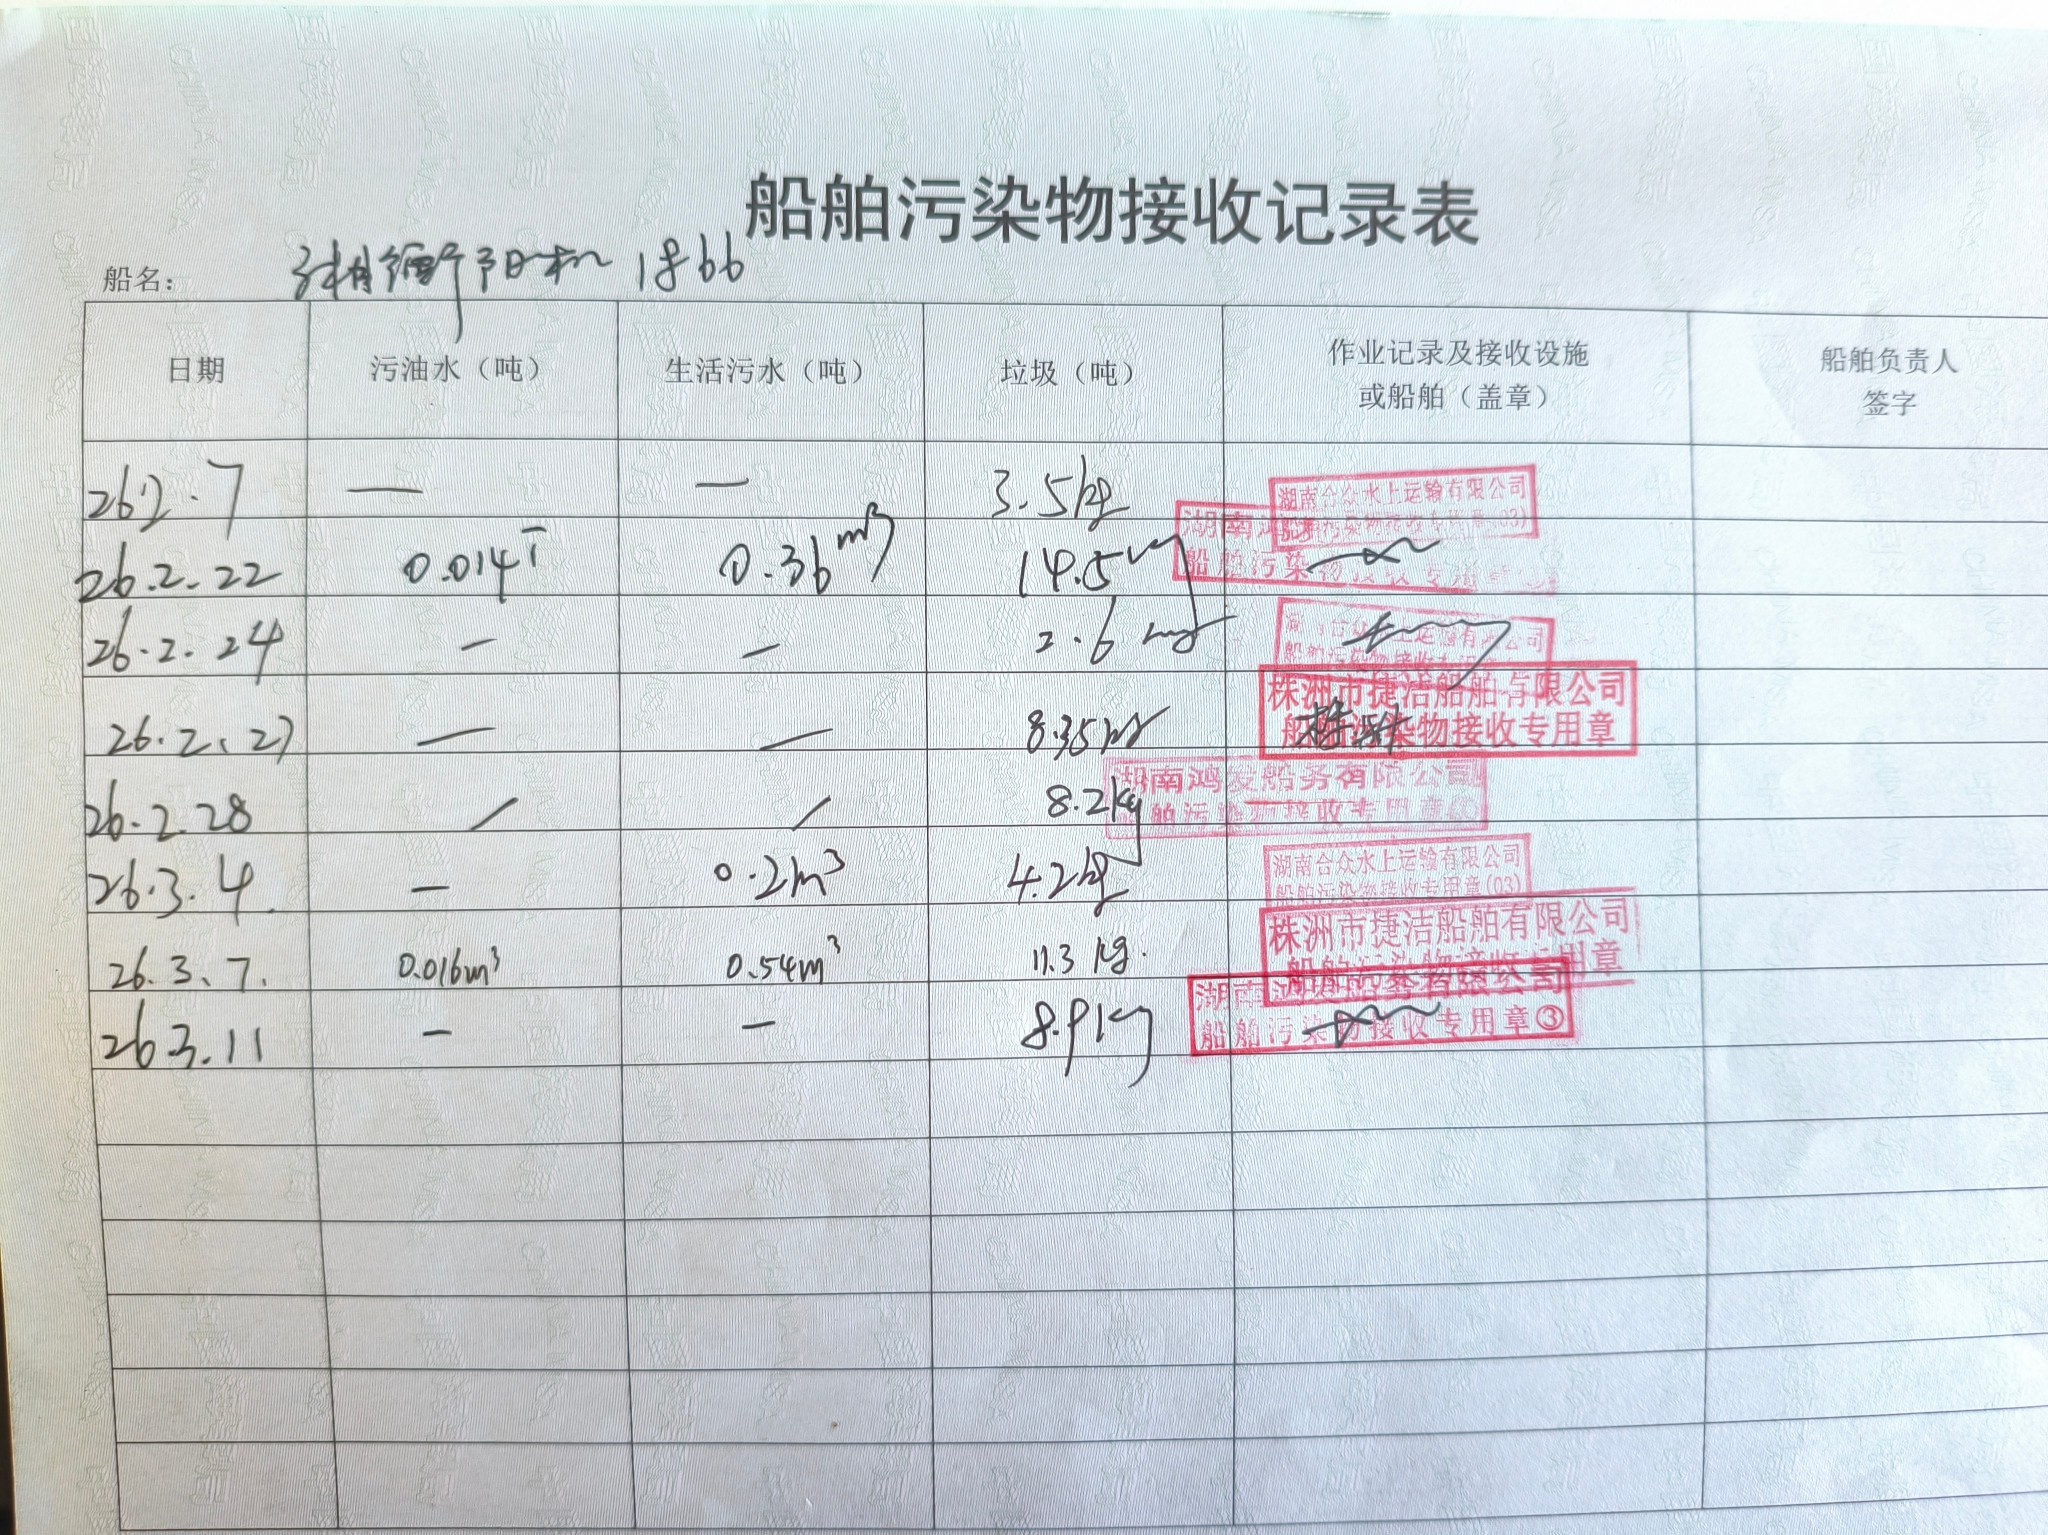 船舶污染物接收记录表
船名： 湘衡阳机 1866
日期 污油水（吨） 生活污水（吨） 垃圾（吨） 作业记录及接收设施或船舶（盖章） 船舶负责人签字
26.2.7 — — 3.5kg 湖南合众水上运输有限公司
26.2.22 0.014T 0.36m³ 14.5kg 湖南 船舶污染物接收专用章
26.2.24 — — 2.6kg 合众水上运输有限公司 船舶污染物接收专用章
26.2.27 — — 8.35kg 株洲市捷洁船舶有限公司 船舶污染物接收专用章 株洲
26.2.28 / / 8.2kg 湖南鸿发船务有限公司 船舶污染物接收专用章
26.3.4 — 0.2m³ 4.2kg 湖南合众水上运输有限公司 船舶污染物接收专用章(03)
26.3.7. 0.016m³ 0.54m³ 11.3 kg. 株洲市捷洁船舶有限公司 船舶污染物接收专用章
26.3.11 — — 8.9kg 湖南鸿发船务有限公司 船舶污染物接收专用章③